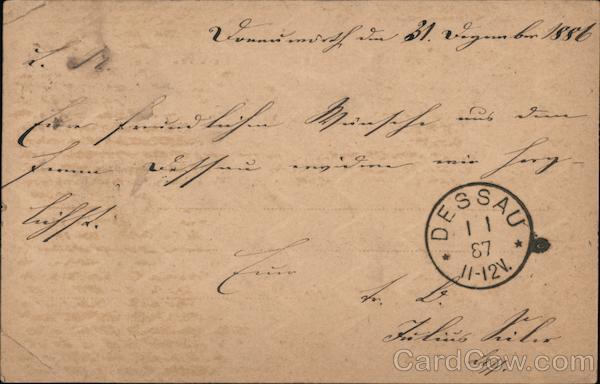 Donauwörth, den 31. Dezember 1886
L. K.
Eure freundlichen Wünsche aus dem
fernen Dessau erwidern wir herz-
lichst.
Euer
tr. D.
Julius
DESSAU
1 1
87
11-12V.
CardCow.com